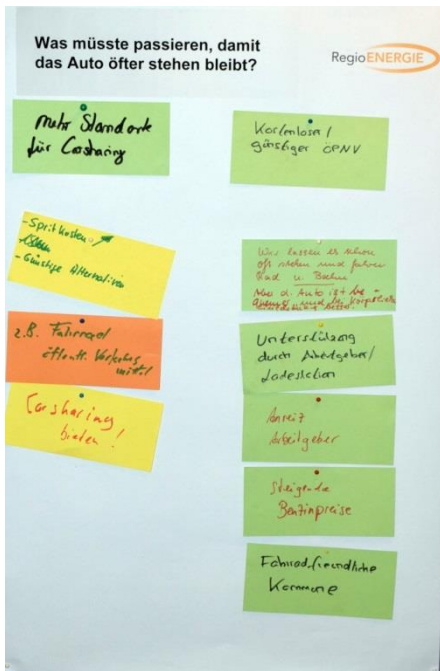 Was müsste passieren, damit
das Auto öfter stehen bleibt?
RegioENERGIE
mehr Standorte
für Carsharing
Kostenloser /
günstiger ÖPNV
- Spritkosten
- Günstige Alternativen
z.B. Fahrrad
öffentl. Verkehrs
mittel
Carsharing
bieten!
Wir lassen es schon
oft stehen und fahren
Rad u. Bahn
Auto ist
Unterstützung
durch Arbeitgeber/
Ladestation
Anreiz
Arbeitgeber
Steigende
Benzinpreise
Fahrradfreundliche
Kommune